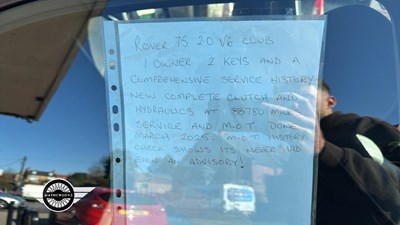 ROVER 75 2.0 V6 CLUB
1 OWNER 2 KEYS AND A
COMPREHENSIVE SERVICE HISTORY
NEW COMPLETE CLUTCH AND
HYDRAULICS AT 88750 MILE
SERVICE AND M.O.T DONE
MARCH 2025 M.O.T HISTORY
CHECK SHOWS ITS NEVER HAD
EVEN AN ADVISORY!